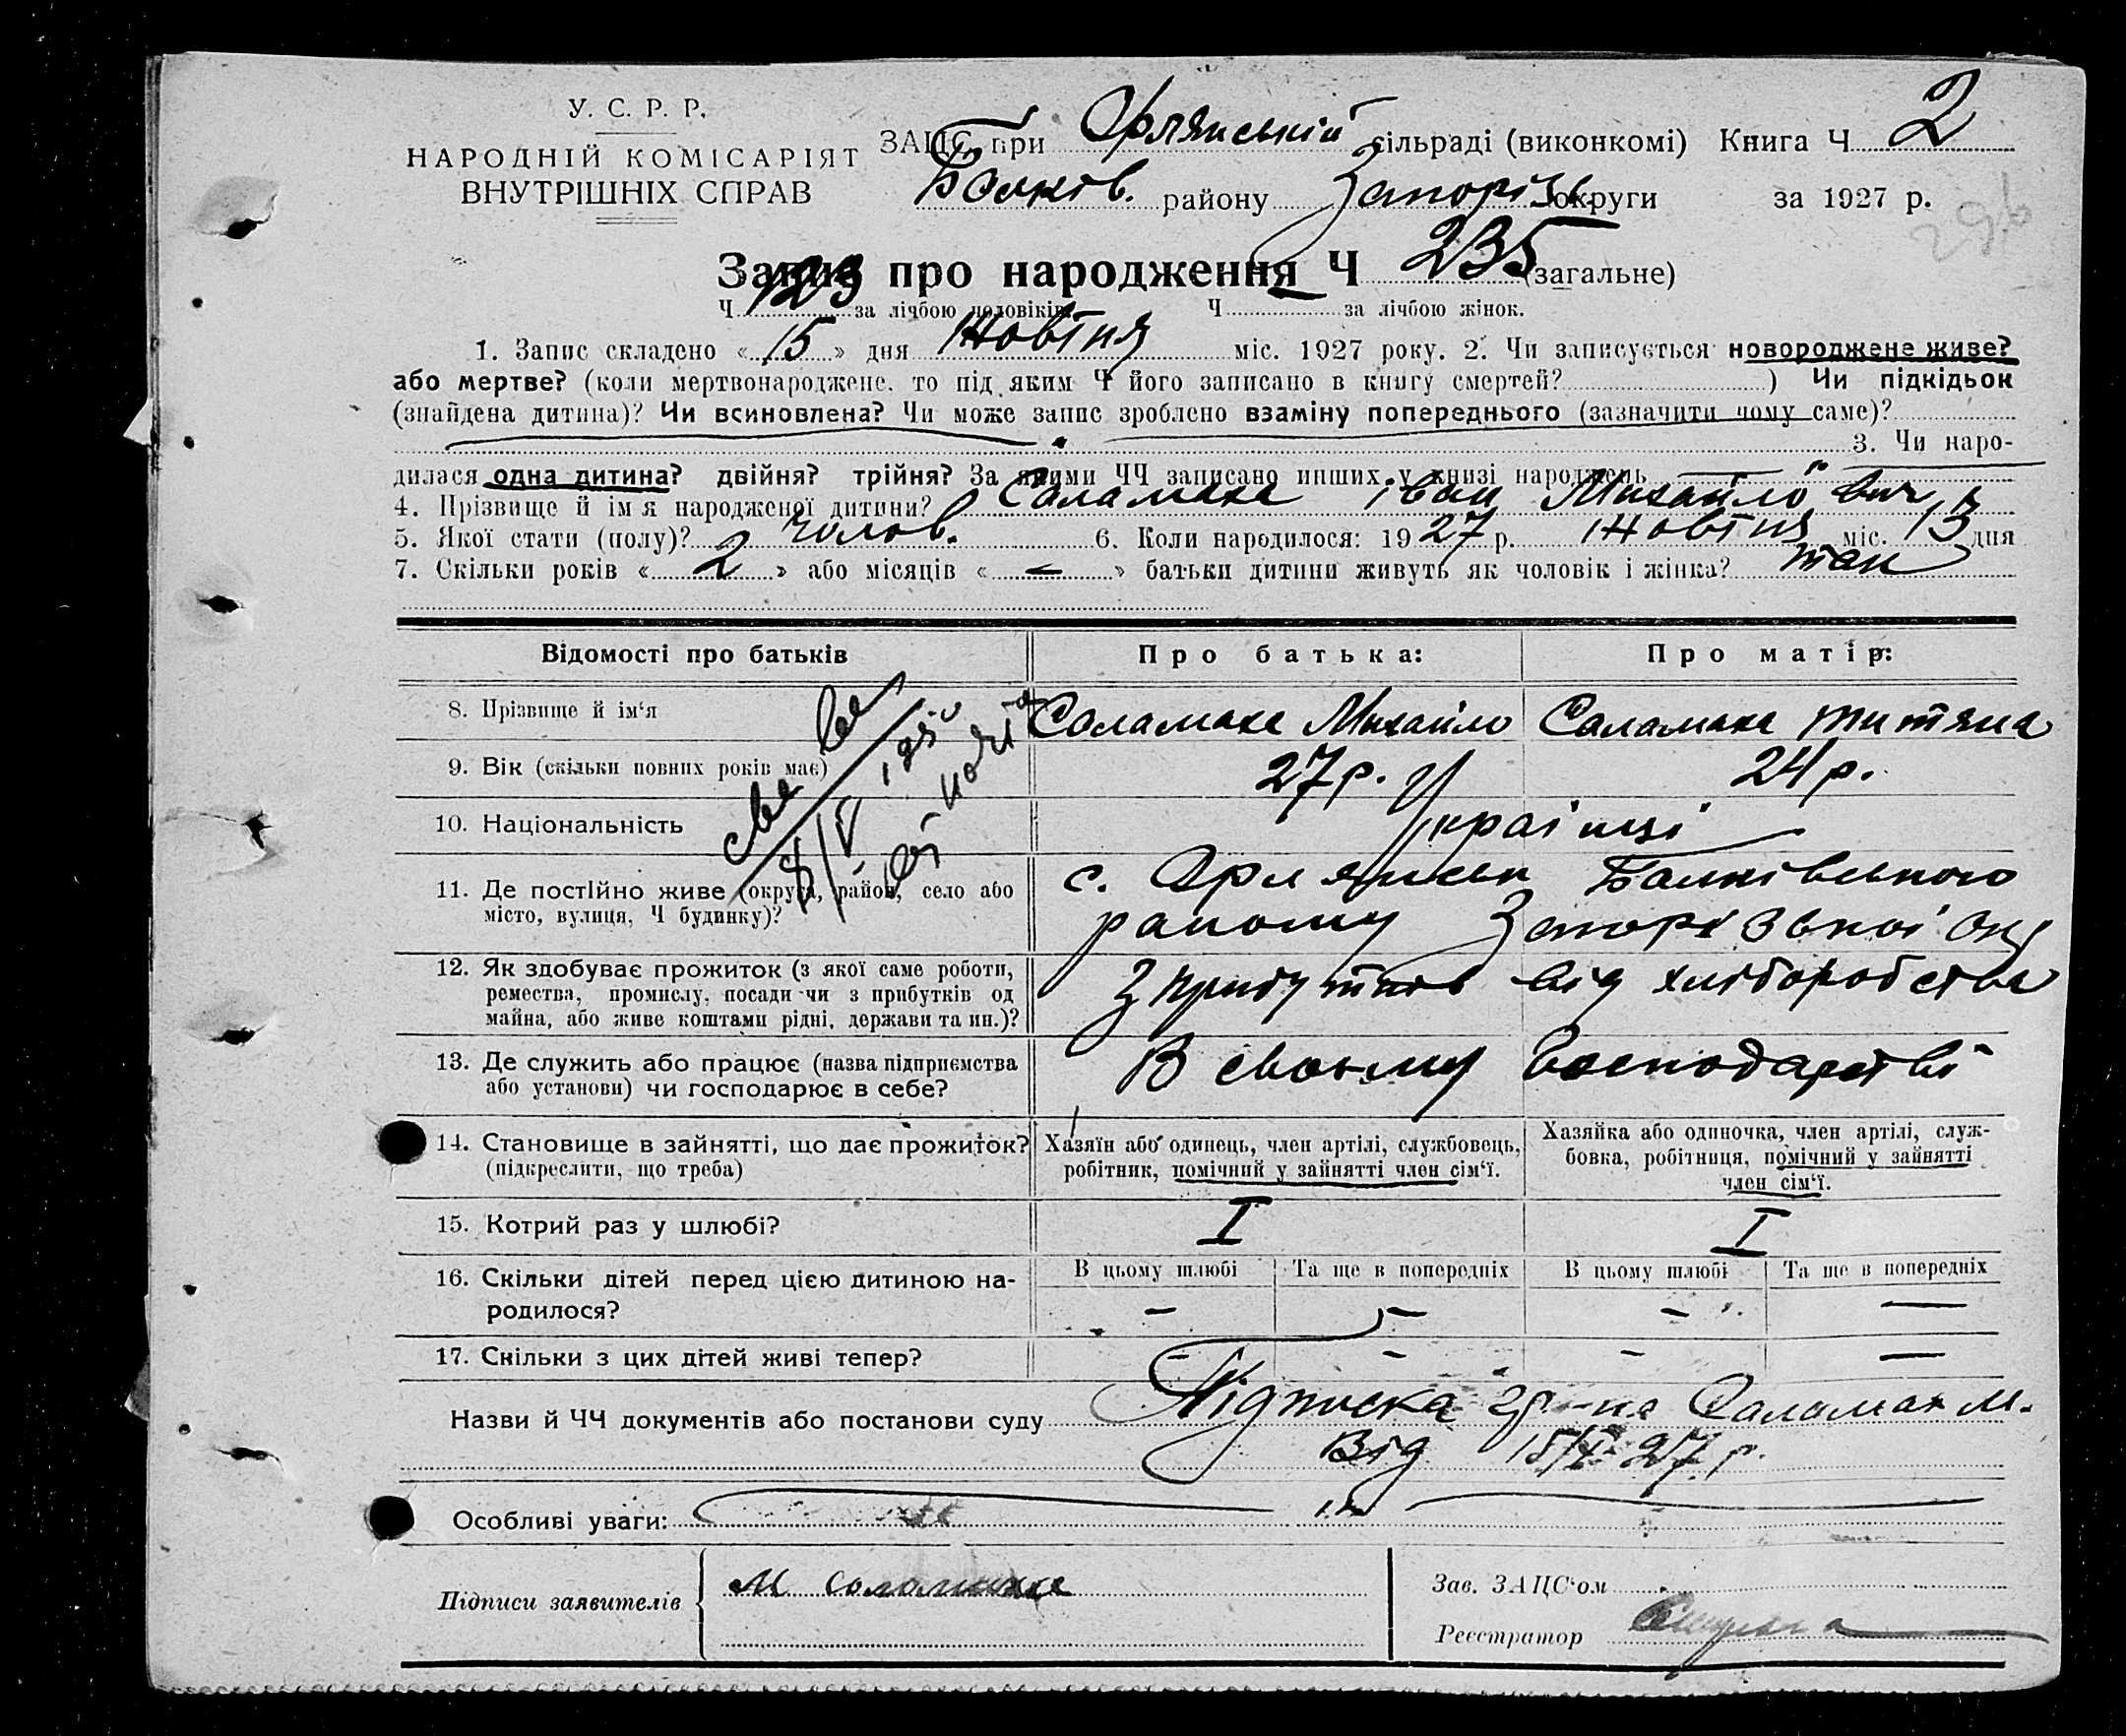 У. С. Р. Р.
НАРОДНІЙ КОМІСАРІЯТ
ВНУТРІШНІХ СПРАВ
ЗАЦС при Орлянській сільраді (виконкомі) Книга Ч 2
Балків. району Запоріз. округи за 1927 р.
296
Запис про народження Ч 235 (загальне)
Ч 123 за лічбою чоловіків. Ч — за лічбою жінок.
1. Запис складено « 15 » дня Жовтня міс. 1927 року. 2. Чи записується новороджене живе?
або мертве? (коли мертвонароджене, то під яким Ч його записано в книгу смертей? ) Чи підкідьок
(знайдена дитина)? Чи всиновлена? Чи може запис зроблено взаміну попереднього (зазначити чому саме)?
3. Чи наро-
дилася одна дитина? двійня? трійня? За якими ЧЧ записано инших у книзі народжень
4. Прізвище й ім'я народженої дитини? Саламаха Іван Михайлович
5. Якої стати (полу)? чолов. 6. Коли народилося: 1927 р. Жовтня міс. 13 дня
7. Скільки років « 2 » або місяців « – » батьки дитини живуть як чоловік і жінка? так
Відомості про батьків Про батька: Про матір:
8. Прізвище й ім'я Саламаха Михайло Саламаха Титяна
9. Вік (скільки повних років має) 27 р. 24 р.
10. Національність Українці
11. Де постійно живе (округа, район, село або
місто, вулиця, Ч будинку)?
с. Орлянськ Балківського
району Запорізької Окр
12. Як здобуває прожиток (з якої саме роботи,
ремества, промислу, посади чи з прибутків од
майна, або живе коштами рідні, держави та ин.)?
З прибутків від хліборобства
13. Де служить або працює (назва підприємства
або установи) чи господарює в себе?
В своьму господарстві
14. Становище в зайнятті, що дає прожиток?
(підкреслити, що треба)
Хазяїн або одинець, член артілі, службовець,
робітник, помічний у зайнятті член сім'ї.
Хазяйка або одиночка, член артілі, служ-
бовка, робітниця, помічний у зайнятті
член сім'ї.
15. Котрий раз у шлюбі? I I
16. Скільки дітей перед цією дитиною на-
родилося?
В цьому шлюбі Та ще в попередніх В цьому шлюбі Та ще в попередніх
– – – —
17. Скільки з цих дітей живі тепер? – – – —
Назви й ЧЧ документів або постанови суду Підписка гр-на Саламах М.
Від 15/X 27 р.
Особливі уваги:
Підписи заявителів М Саламаха
Зав. ЗАЦС'ом
Реєстратор